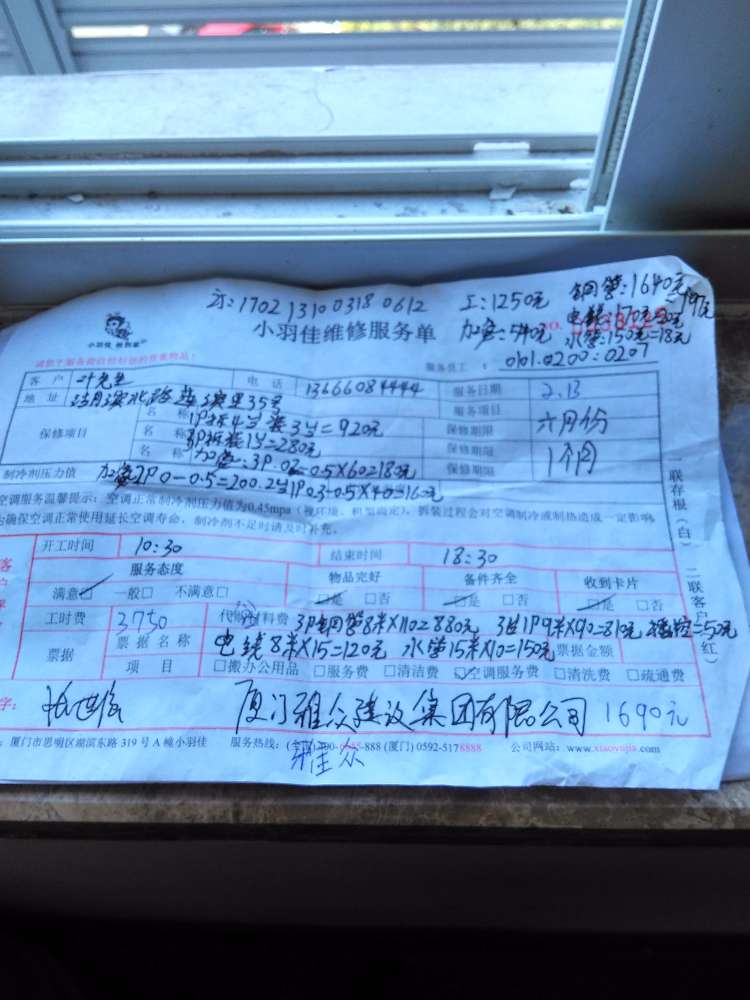 方:1702 1310 0318 0612 工:1250元 铜管:1640元
小羽佳维修服务单 加雪:540元 电线:170元
NO. 水管:150元=18元
小羽佳
服务员工: 0101.0200:0207
客 户 叶先生 电 话 13666084444 服务日期 2.13
地 址 湖滨北路 湖滨里35号 服务项目
保修项目 名 称 1P拆4台装3台=920元 保修期限 六月份
名 称 3P拆装1台=280元 保修期限 1个月
名 称 加雪:3P.02-0.5X60=180元 保修期限
制冷剂压力值 加雪2P0-0.5=200.2台1P03-0.5X40=160元
空调服务温馨提示:空调正常制冷剂压力值为0.45mpa(视环境、机型而定),拆装过程会对空调制冷或制热造成一定影响
为确保空调正常使用延长空调寿命,制冷剂不足时请及时补充。
开工时间 10:30 结束时间 18:30
服务态度 物品完好 备件齐全 收到卡片
满意□ 一般□ 不满意□ □是 □否 □是 □否 □是 □否
工时费 3750 材料费 3P铜管8米X110=880元 3台1P9米X90=810元 遥控=50元
票据 票据名称 电线8米X15=120元 水管15米X10=150元 票据金额
项 目 □搬办公用品 □服务费 □清洁费 □空调服务费 □清洗费 □疏通费
字: 厦门雅众建设集团有限公司 1690元
:厦门市思明区湖滨东路 319 号 A 幢小羽佳 服务热线: -888 (厦门) 0592-5178888 公司网站:www.xiaoyujia.com
雅众
一联存根(白) 二联客户(红)